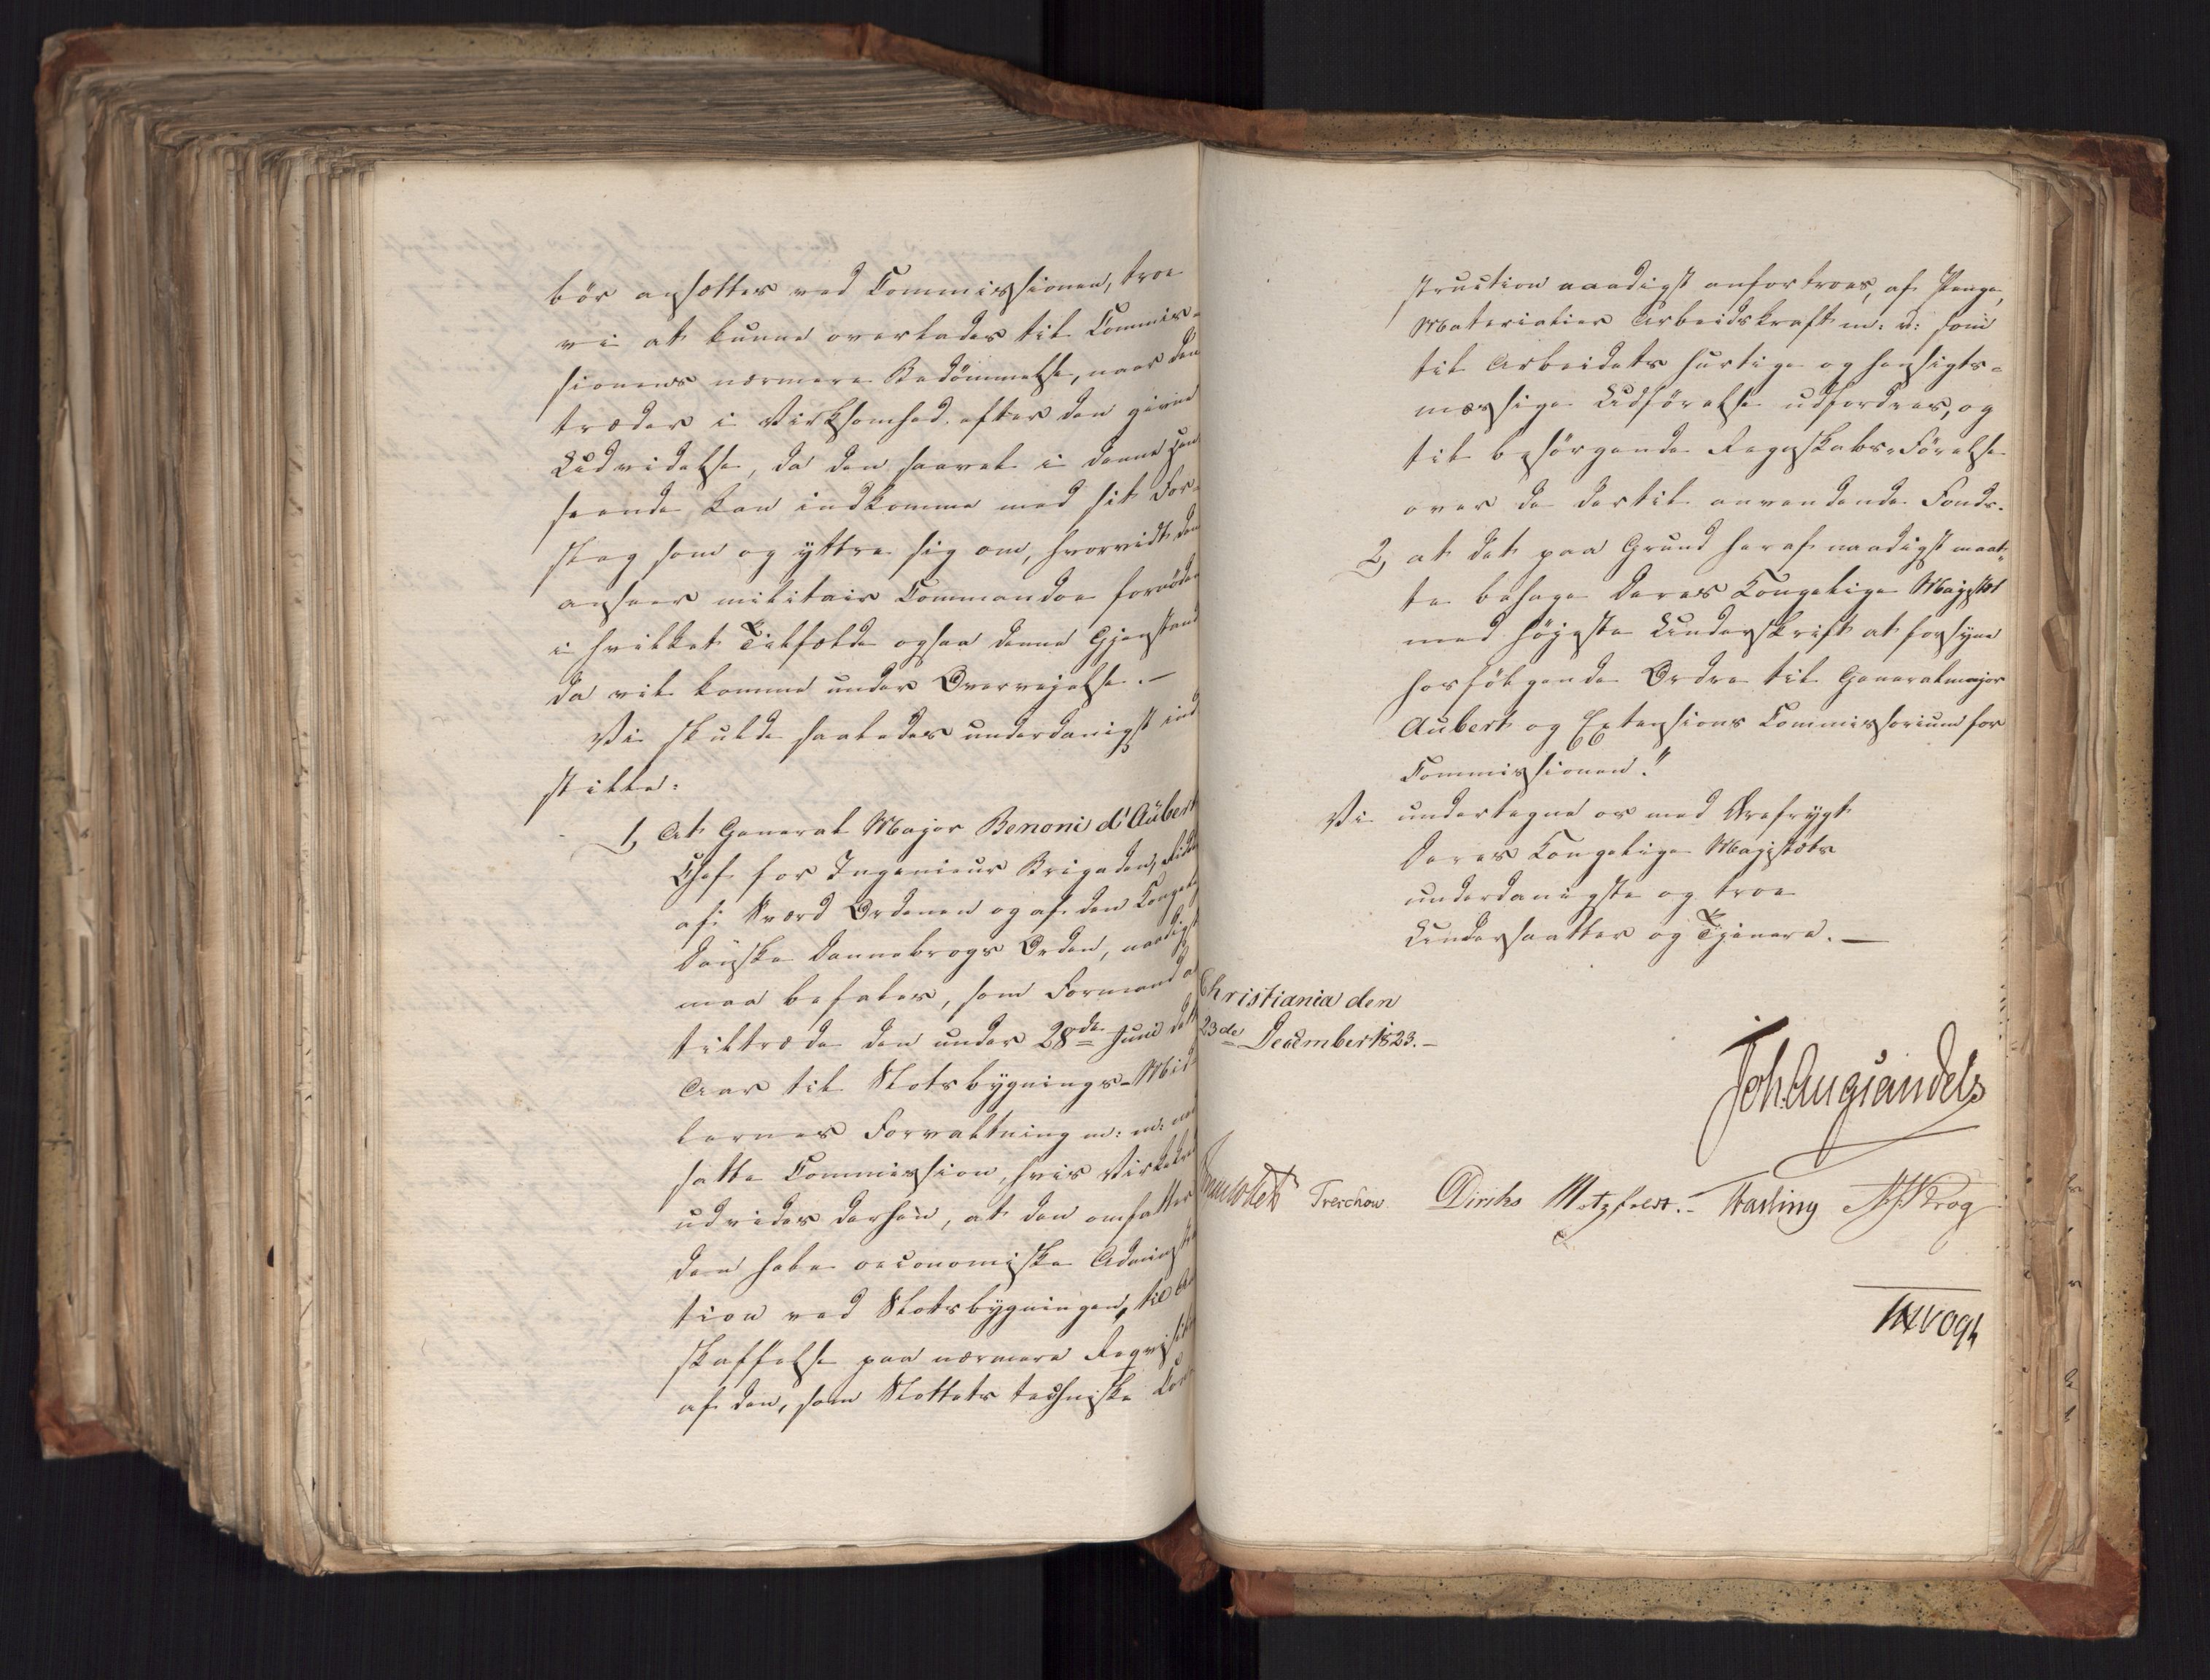 bör ansættes ved Commissionen, troe
vi at kunne overlades til Commis-
sionens nærmere Bedömmelse, naar den
træder i Virksomhed efter den givne
Udvidelse, da den saavel i denne Hen
seende kan indkomme med sit For-
slag som og yttre sig om, hvorvidt den
anseer militair Commandoe fornöden
i hvilket Tilfælde ogsaa denne Gjenstand
da vil komme under Overvejelse. —
Vi skulde saaledes underdanigst ind
stille:
1, At General Major Benoni d'Aübert
Chef for Ingenieur Brigaden, Ridder
af Sværd Ordenen og af den Kongelig
Danske Dannebrogs Orden, naadigst
maa befales, som Formand at
tiltræde den under 28de Juni dette
Aar til Slotsbygnings-Mid-
lernes Forvaltning m: m: ned
satte Commission, hvis Virkekreds
udvides derhen, at den omfatter
den hele oeconomiske Administra
tion ved Slotsbygningen, til An
skaffelse paa nærmere Reqvisition
af den, som Slottets techniske Con
struction naadigst anfortroes, af Penge,
Materialier Arbeidskraft m: v: som
til Arbeidets hurtige og hensigts-
mæssige Udförelse udfordres, og
til besörgende Regnskabs-Förelse
over de dertil anvendende Fonds.
2, at det paa Grund heraf naadigst maat-
te behage Deres Kongelige Majestæt
med höjeste Underskrift at forsyne
hosfölgende Ordre til Generalmajor
Aubert og Extensions Commissorium for
Commissionen."
Vi undertegne os med Ærefrygt
Deres Kongelige Majestæts
underdanigste og troe
Undersaatter og Tjenere. —
Christiania den
23de December 1823. —
Joh. Aug Sandels
Treschow Diriks Motzfeldt. Fasting N J Krog
Vogt